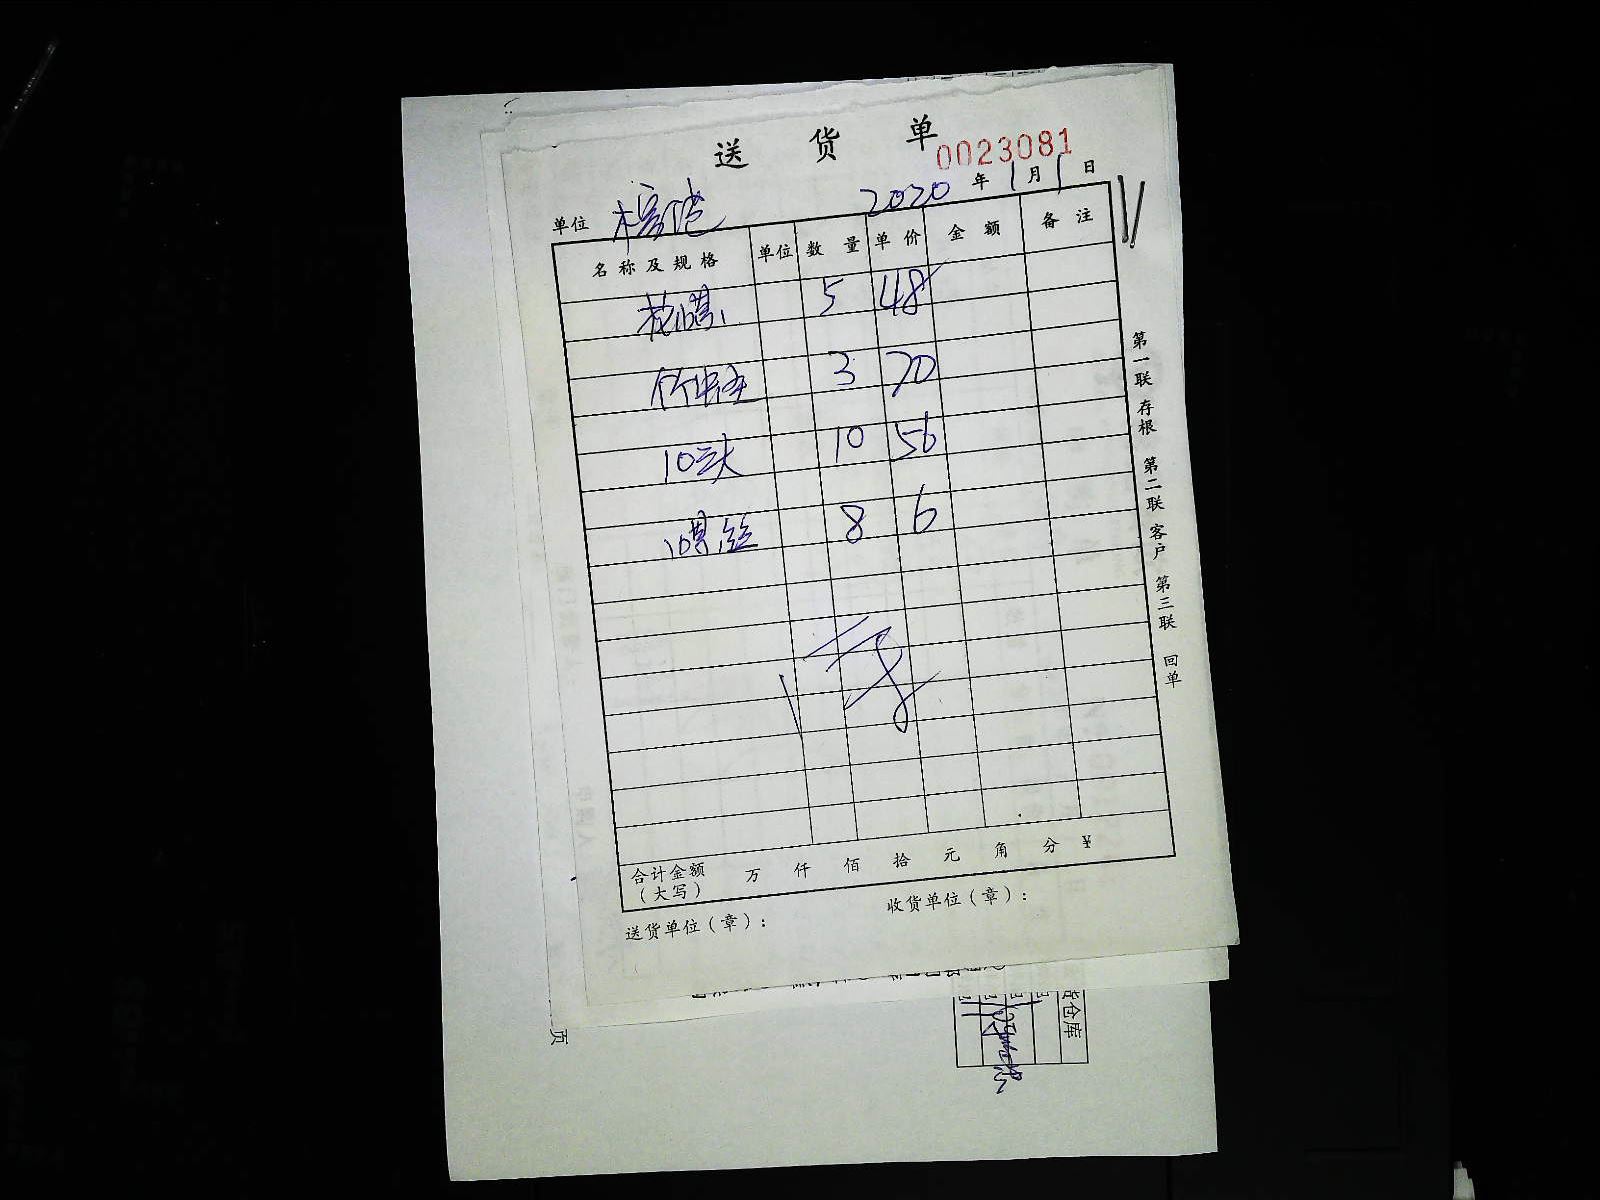 送货单
0023081
2020年1月1日
单位
名称及规格 单位 数量 单价 金额 备注
花螺 5 48
竹蛏王 3 70
10云大 10 56
螺丝 8 6
合计金额（大写） 万 仟 佰 拾 元 角 分 ¥
送货单位（章）： 收货单位（章）：
第一联 存根 第二联 客户 第三联 回单
仓库
页